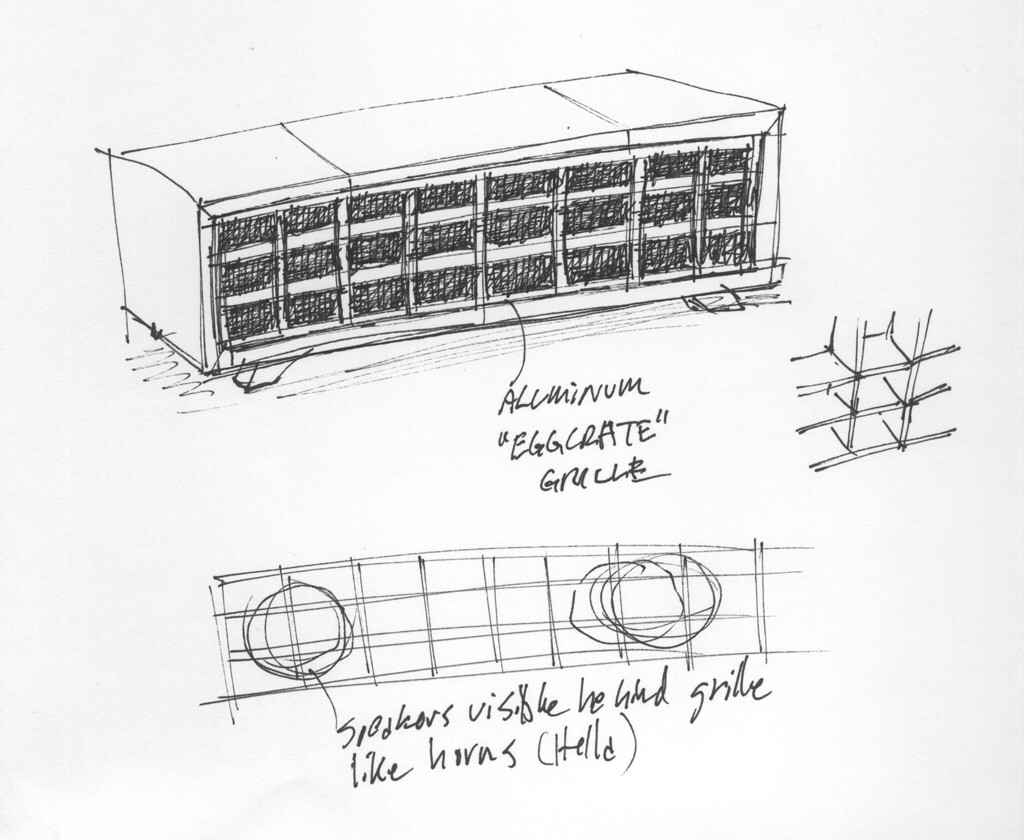 ALUMINUM
"EGGCRATE"
GRILLE
speakers visible behind grille
like horns (Hella)